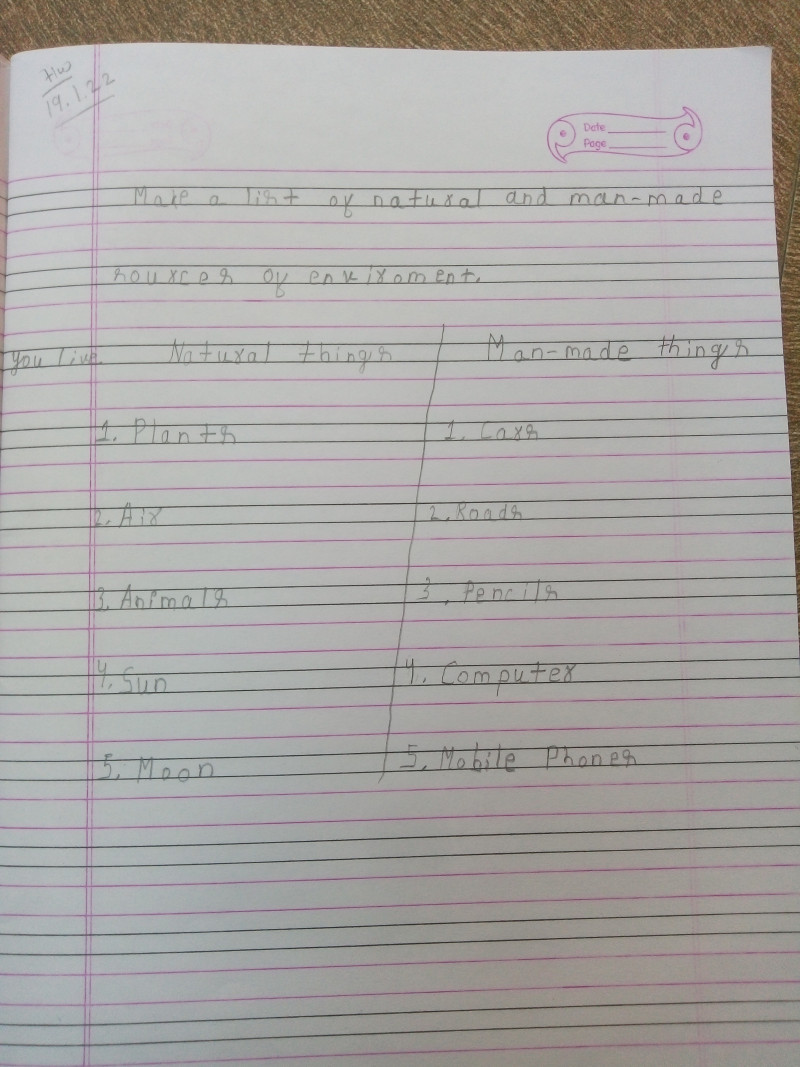 HW
19.1.22
Date
Page
Make a list of natural and man-made
sources of enviroment.
you live. Natural things Man-made things
1. Plants 1. Cars
2. Air 2. Roads
3. Animals 3. Pencils
4. Sun 4. Computer
5. Moon 5. Mobile Phones